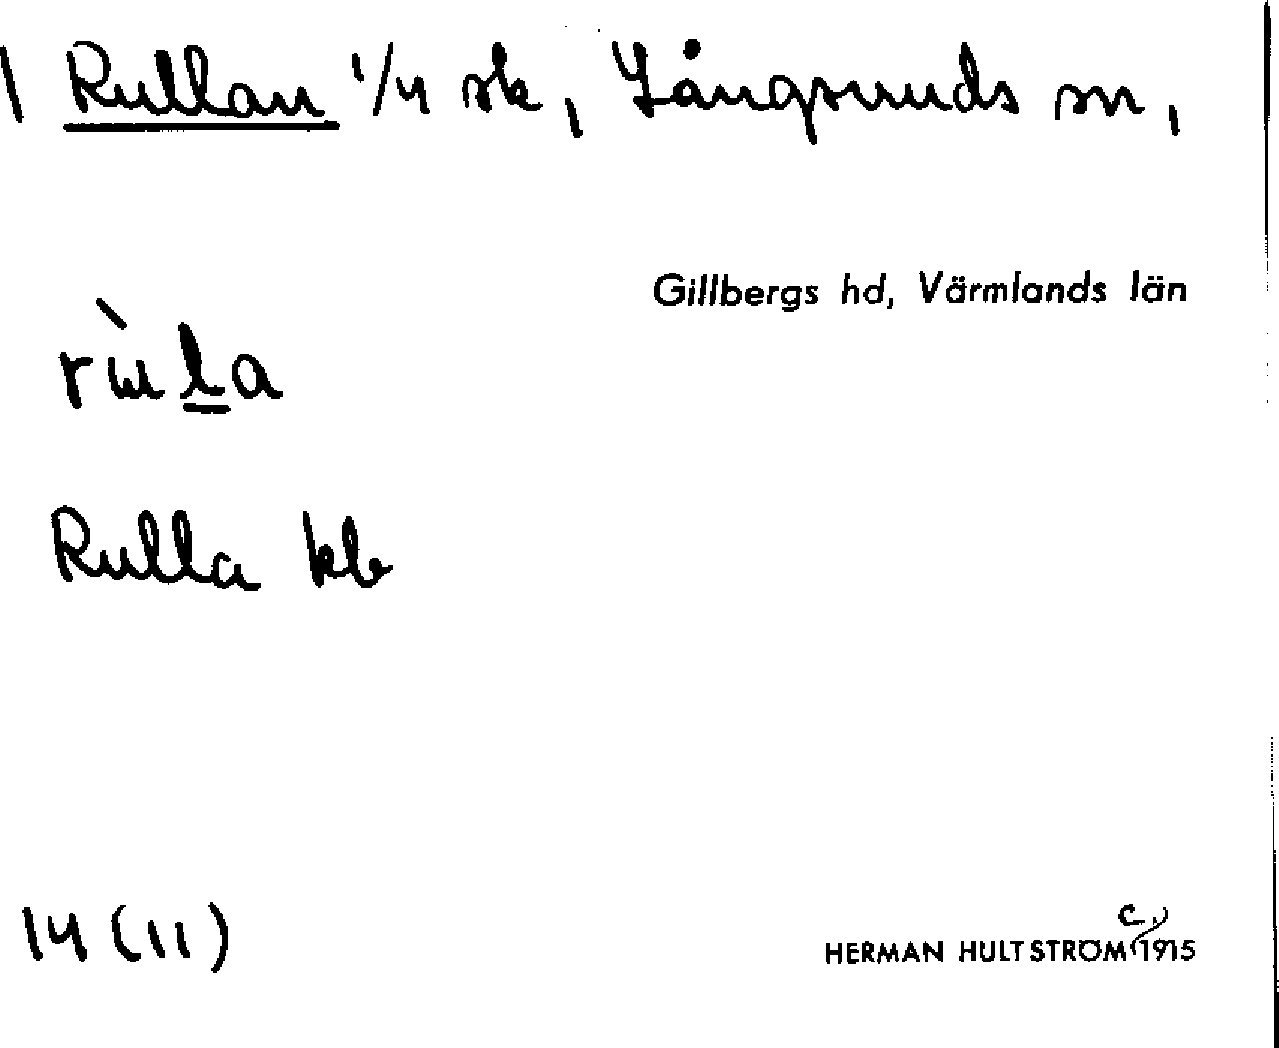 1 Rullan 1/4 sk, Långseruds sn,
Gillbergs hd, Värmlands län
Rulla kb
14 (11)
c.
HERMAN HULTSTRÖM 1915